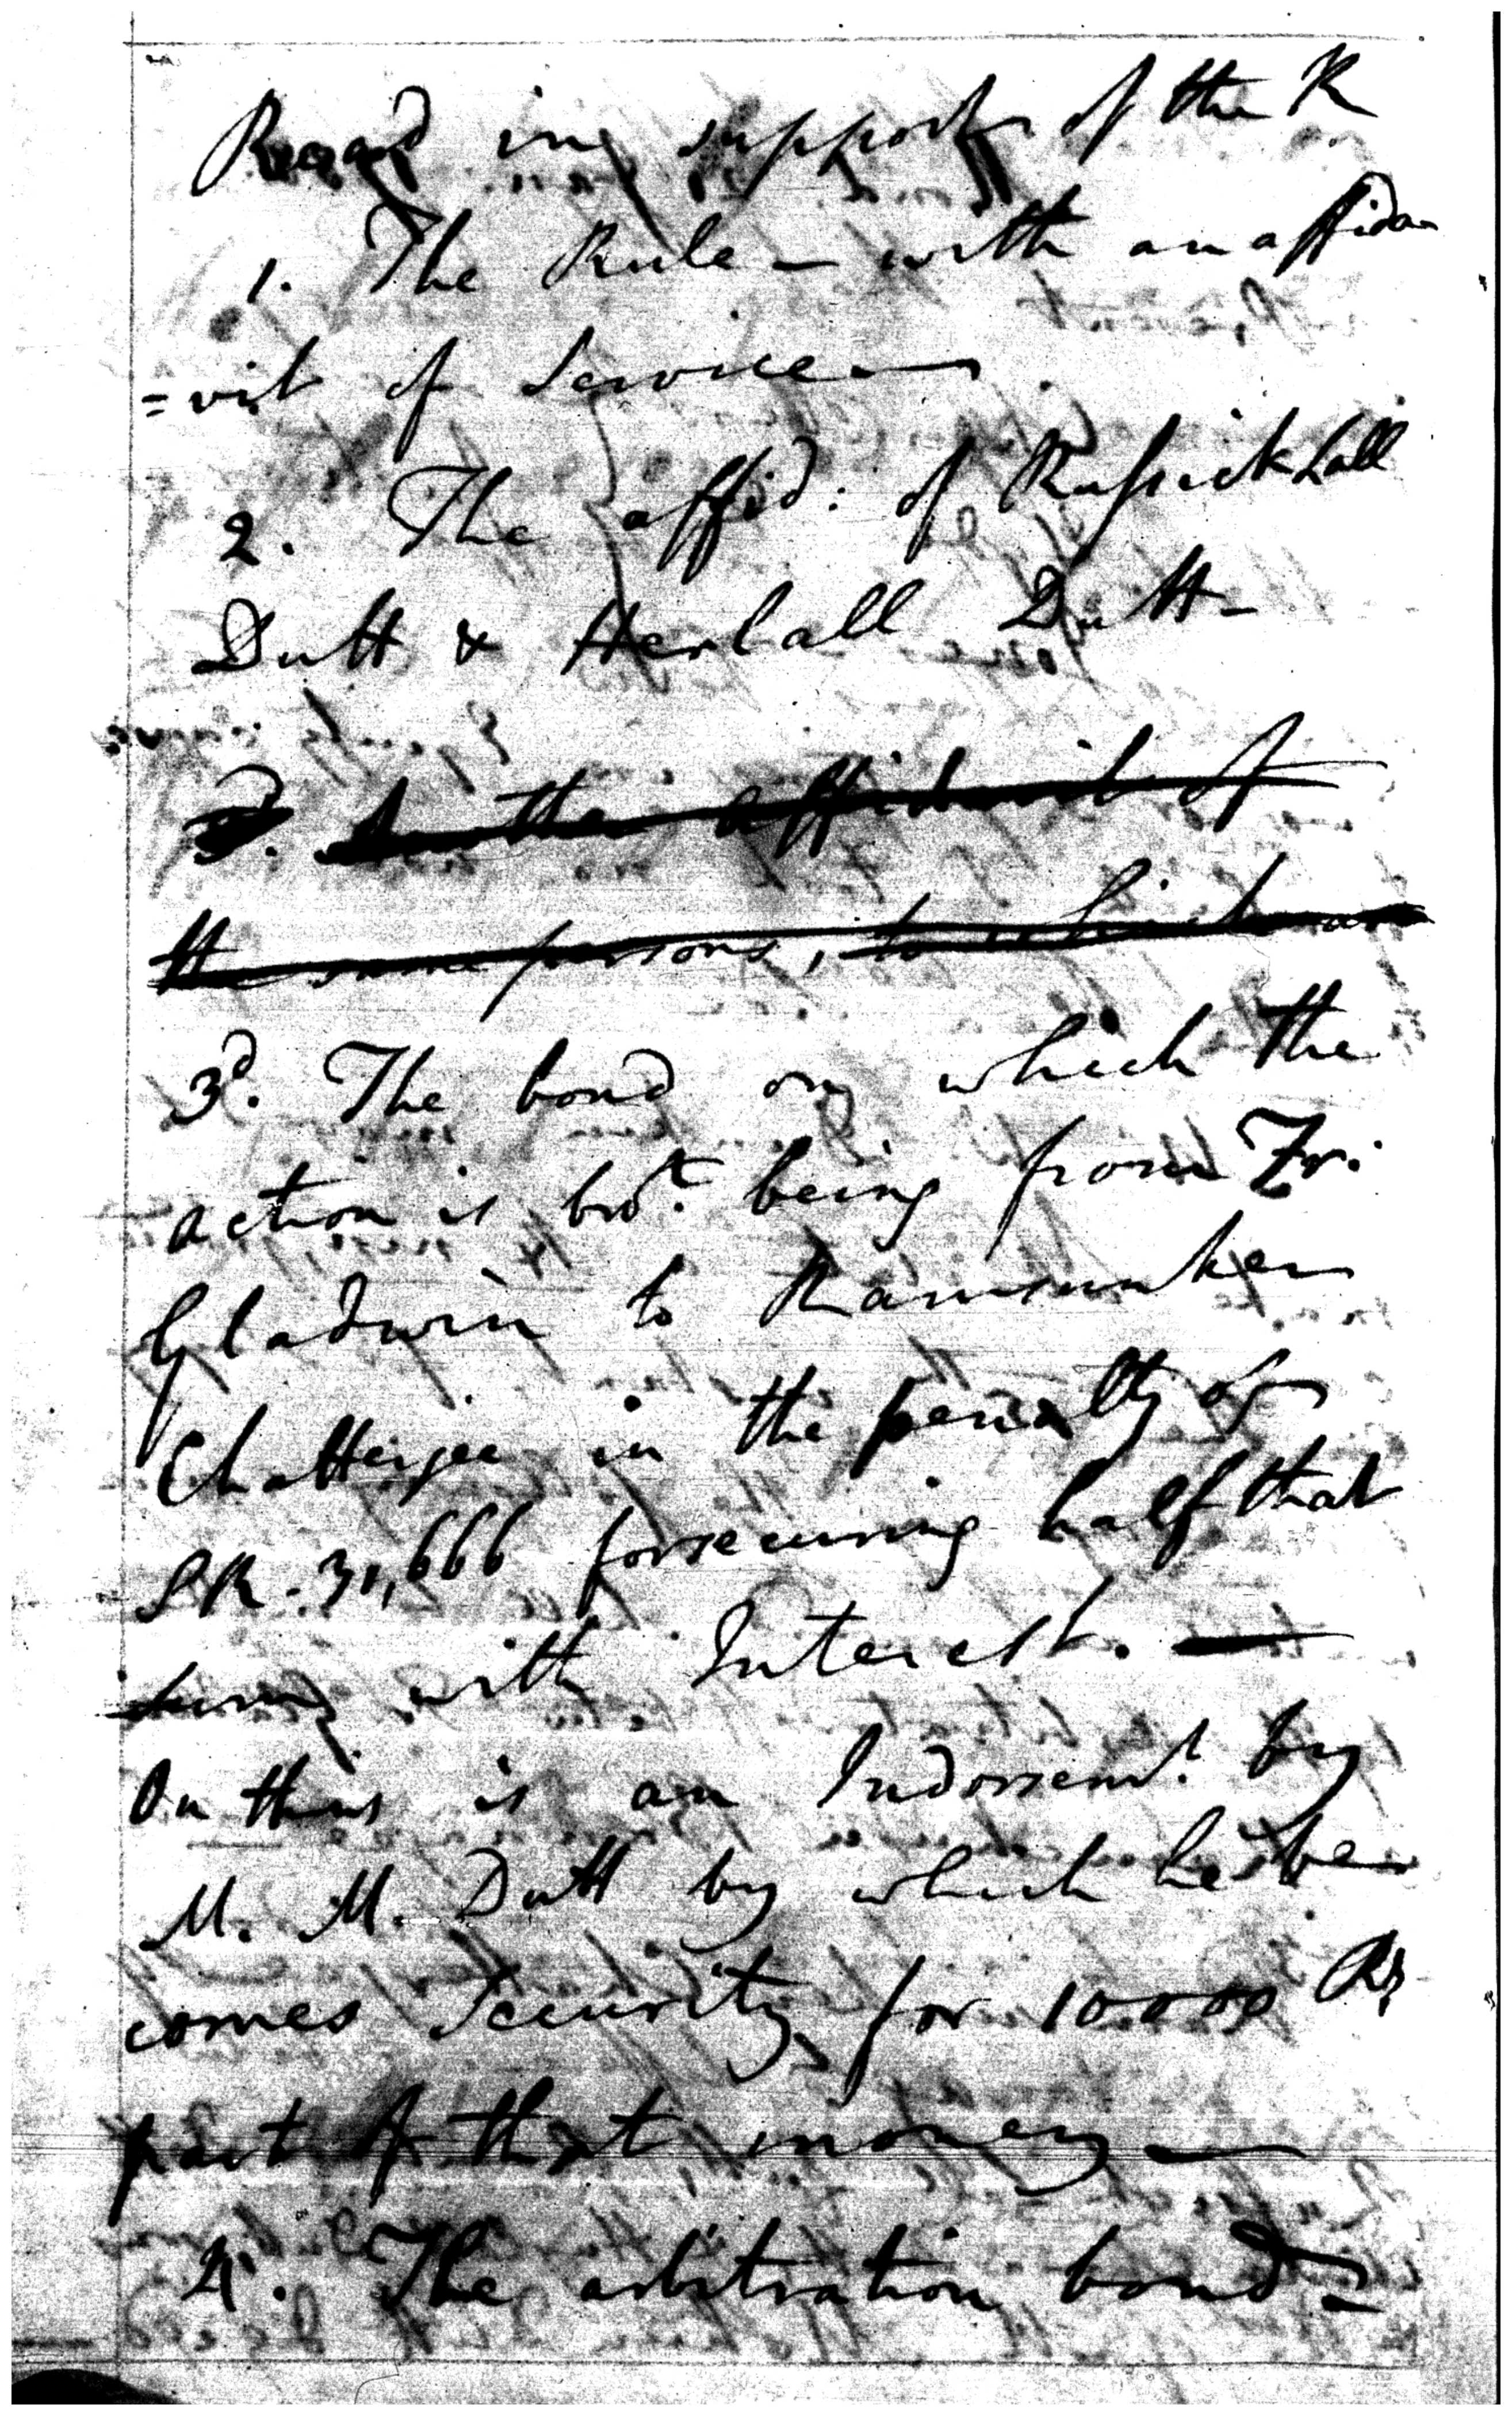 Read in support of the R
1. The Rule – with an affida
=vit of Service –
2. The affid: of Russick Lall
Dutt & Herlall Dutt –
3. Another affidavit of
the same persons, to which are
3d. The bond on which the
action is brot. being from Fr.
Gladwin to Ramsunker
Chatterjee in the penalty of
SR. 31,666 for securing half that
sum with Interest. —
On this is an Indorsemt. by
M. M. Dutt by which he be
comes Security for 10000 Rs
part of that money —
4. The arbitration bond –